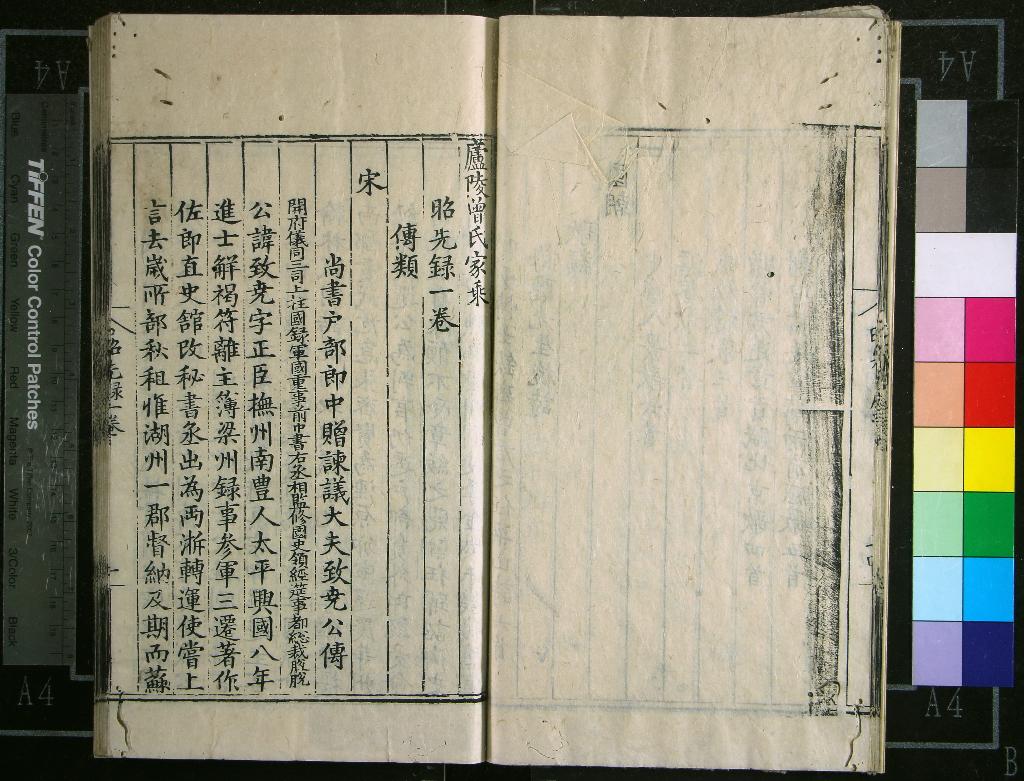 廬陵曾氏家乘
昭先録一卷
傳類
宋
尚書户部郎中贈諫議大夫致尭公傳
開府儀同三司上柱國録軍國重事前中書右丞相監修國史領經筵事都総裁脱脱
公諱致尭字正臣撫州南豊人太平興國八年
進士解褐符離主簿梁州録事参軍三遷著作
佐郎直史舘改秘書丞出為两浙轉運使嘗上
言去歲所部秋租惟湖州一郡督納及期而蘇
昭先録一卷
一
TIFFEN Color Control Patches
Blue
Cyan
Green
Yellow
Red
Magenta
White
3/Color
Black
A4
A4
A4
A4
B